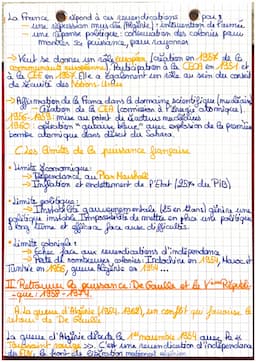 La France répond à ces revendications par :
→ une répression musclée (Algérie) : intervention de l'armée
→ une réponse politique : conservation des colonies pour
montrer sa puissance, pour rayonner
→ Veut se donner un rôle européen (création en 1957 de la
communauté européenne). Participation à la CECA en 1951 et
à la CEE en 1957. Elle a également son rôle au sein du conseil
de sécurité des Nations Unies
→ Affirmation de la France dans le domaine scientifique (nucléaire)
→ Création de la CEA (commissariat à l'énergie atomique)
1956-1959 : mise au point de réacteurs nucléaires
1960 : opération "gerboise bleue" avec explosion de la première
bombe atomique dans désert du Sahara
C. Les limites de la puissance française
• Limite économique :
→ Dépendance au Plan Marshall
→ Inflation et endettement de l'Etat (25% du PIB)
• Limite politique :
→ Instabilité gouvernementale
politique instable. Impossibilité de mettre en place une politique
à long terme et efficace face aux difficultés.
• Limite coloniale :
→ Echec face aux revendications d'indépendance
→ Perte de nombreuses colonies : Indochine en 1954, Maroc et
Tunisie en 1956, guerre Algérie en 1954 ...
II Retrouver la puissance : De Gaulle et la Vème Républi-
-que : 1958-1974
A. La guerre d'Algérie (1954-1962), un conflit qui favorise le
retour de De Gaulle
La guerre d'Algérie débute le 1er novembre 1954 avec la
Toussaint rouge. C'est une revendication d'indépendance
du FLN, le front de libération national algérien